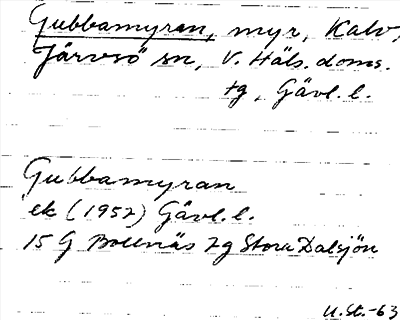 Gubbamyran, myr, Kalv,
Järvsö sn, V. Häls. doms.
tg, Gävl. l.
Gubbamyran
ek (1952) Gävl. l.
15 G Bollnäs 7g Stora Dalsjön
U.St.-63